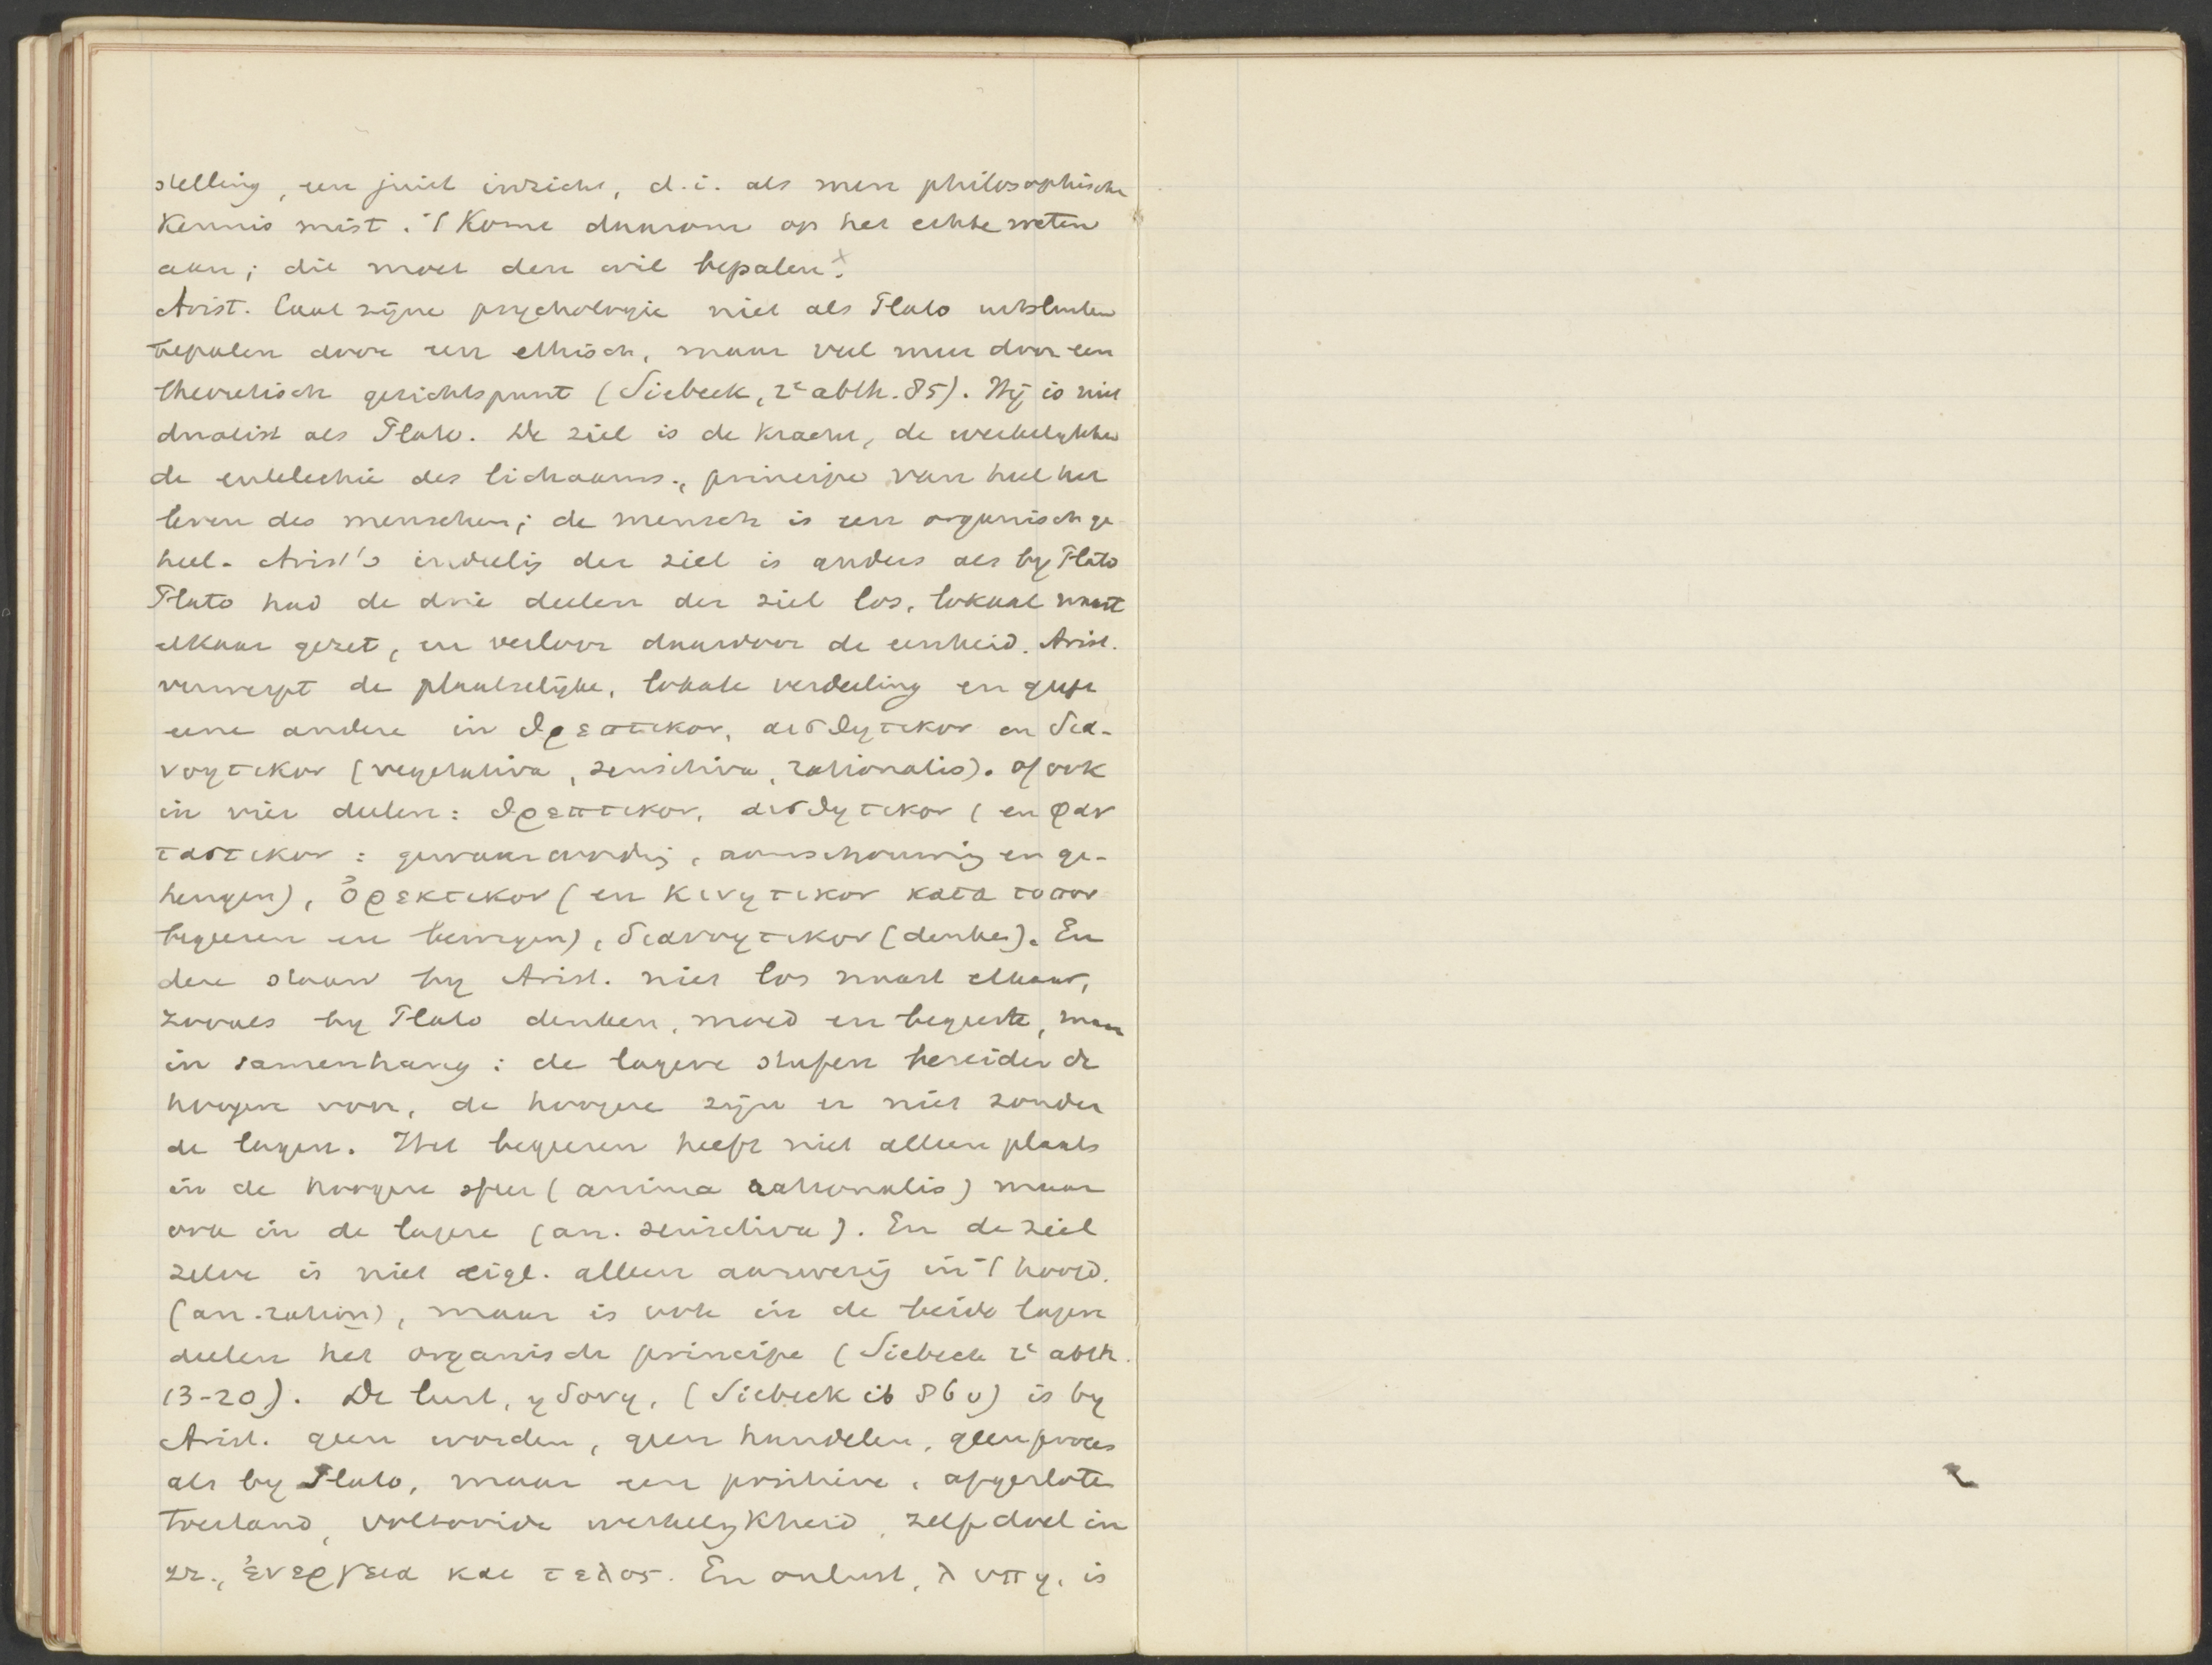 stelling, een juist inzicht, d.i. als men philosophische
kennis mist. 't Komt daarom op het echte weten
aan; die moet den wil bepalen.x
Arist. laat zijne psychologie niet als Plato uitsluiten
bepalen door een ethisch, maar veel meer door een
theoretisch gezichtspunt (Siebeck, 2e abth. 85). Hij is niet
dualist als Plato. De ziel is de kracht, de werkelijkhei
de entelechie des lichaams, principe van heel het
leven des menschen; de mensch is een organisch ge-
heel. Arist's indeelig der ziel is anders als by Plato
Plato had de drie deelen der ziel los, lokaal naast
elkaar gezet, en verloor daardoor de eenheid. Arist.
verwerpt de plaatselijke, lokale verdeeling en geeft
eene andere in θρεπτικον, αισθητικον en δια-
νοητικον (vegetativa, sensitiva, rationalis). Of ook
in vier deelen: θρεπτικον, αισθητικον (en φαν
ταστικον: gewaarwordig, aanschouwing en ge-
heugen), ὀρεκτικον (en κινητικον κατα τοπον
begeeren en bewegen), διανοητικον (denken). En
deze staan by Arist. niet los naast elkaar,
zooals by Plato denken, moed en begeerte, maar
in samenhang: de lagere stufen bereiden de
hoogere voor, de hoogere zijn er niet zonder
de lagere. Het begeeren heeft niet alleen plaats
in de hoogere sfeer (anima rationalis) maar
ook in de lagere (an. sensitiva). En de ziel
zelve is niet eigl. alleen aanwezig in 't hoofd.
(an. ration), maar is ook in de beide lagere
deelen het organische principe (Siebeck 2e abth.
13-20). De lust, ηδονη, (Siebeck ib 86 v) is by
Arist. geen worden, geen handelen, geen proces
als by Plato, maar een positieve, afgesloten
toestand, voltooide werkelykheid, zelf doel in
zr., ἐνεργεια και τελος. En onlust, λυπη, is